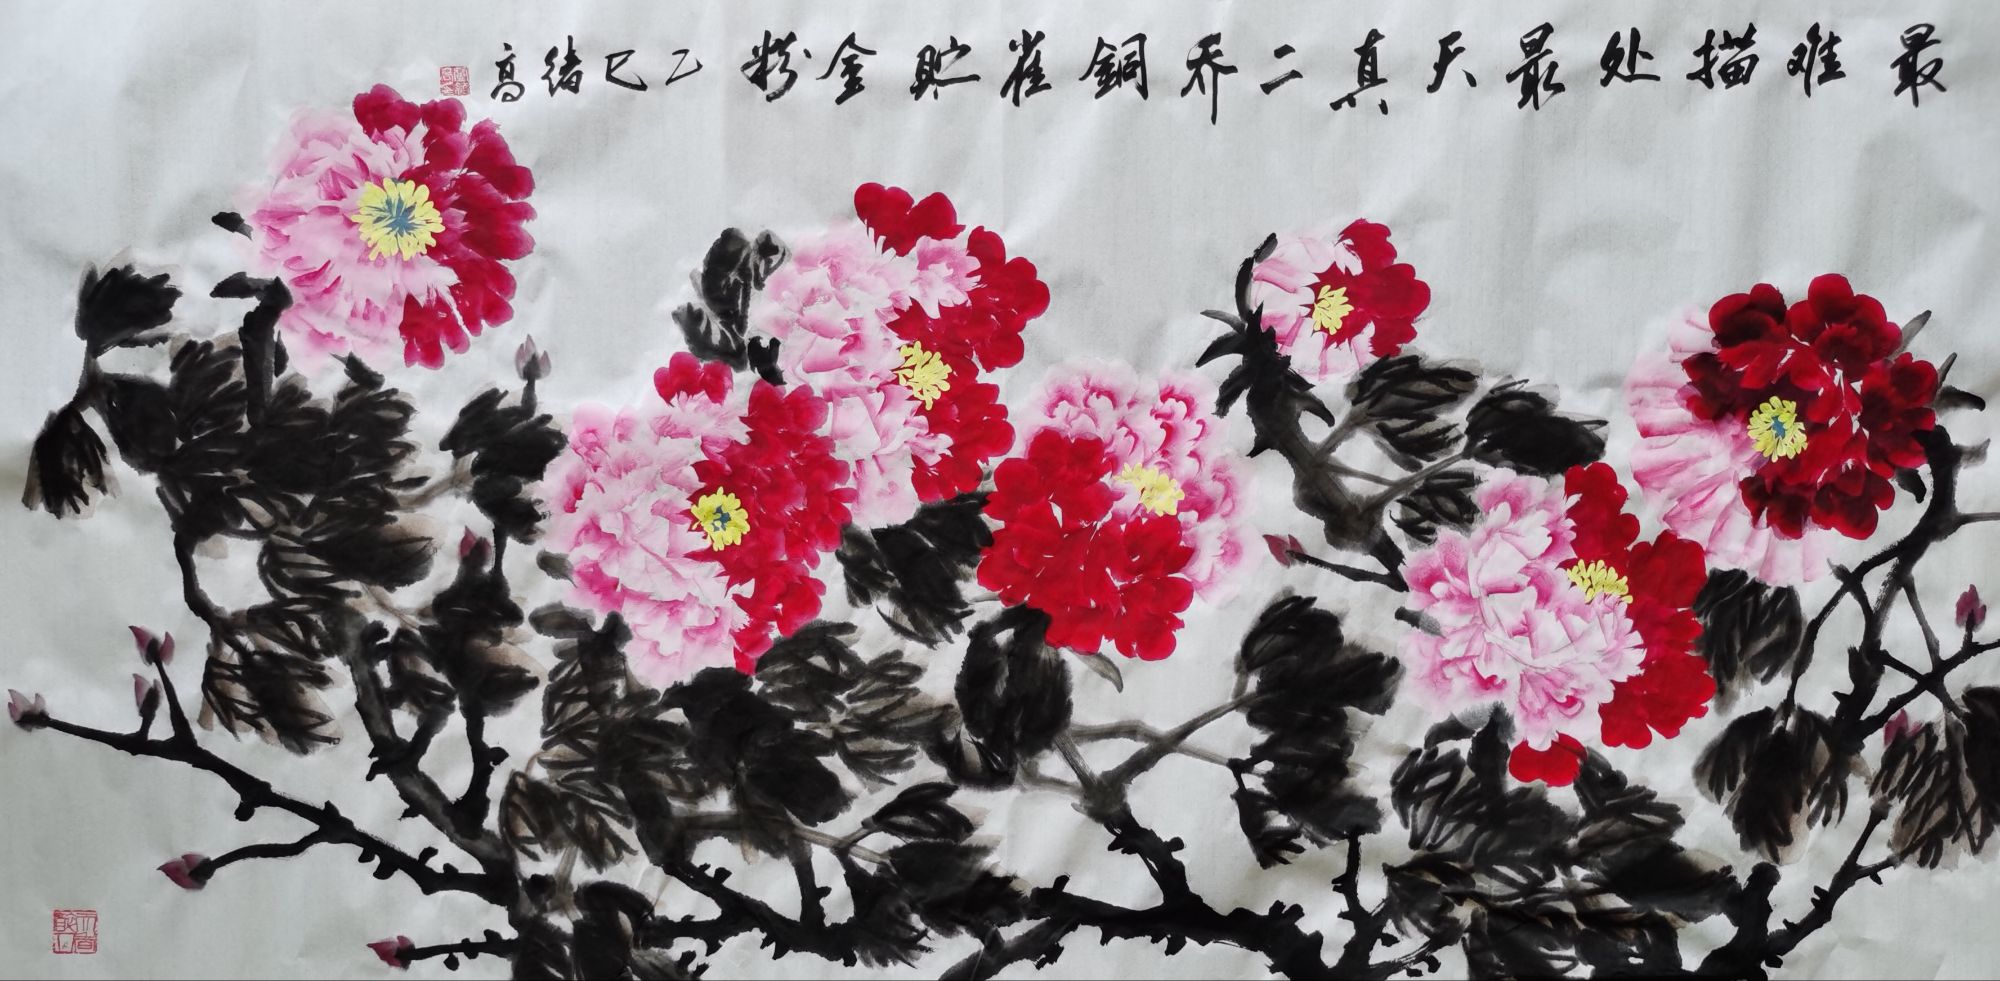 最难描处最天真二乔銅雀贮金粉乙巳绪高